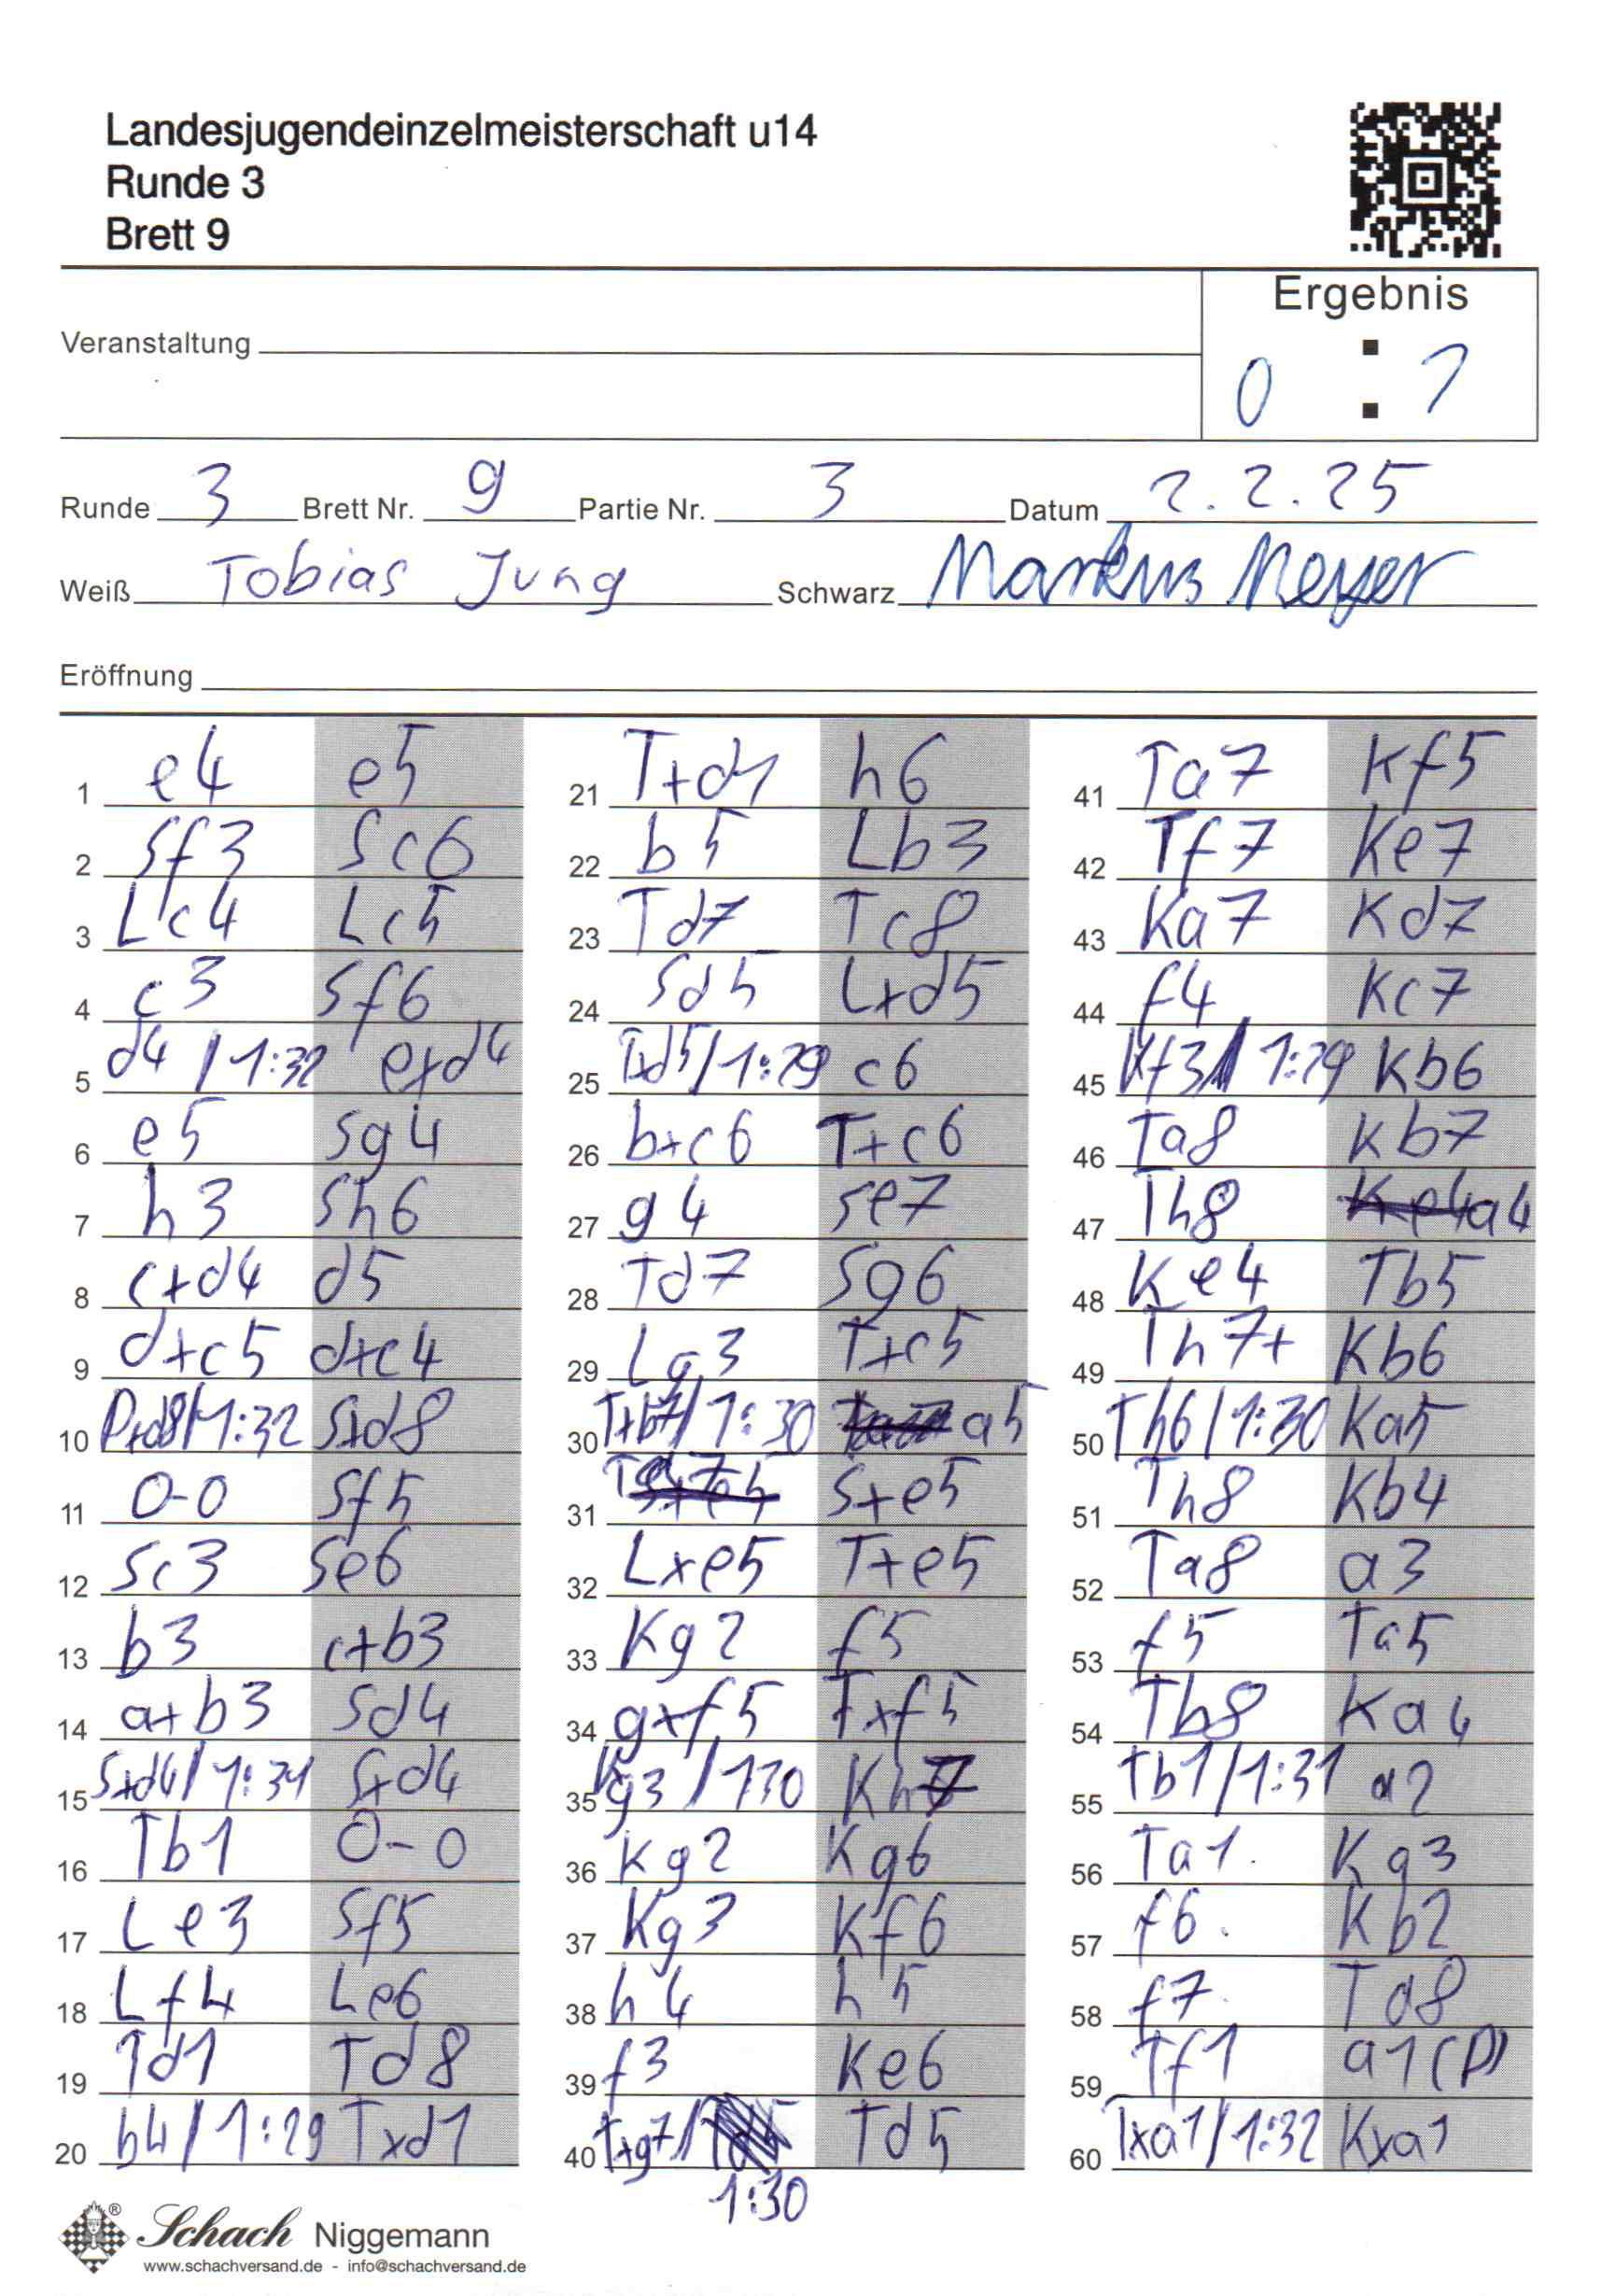 Landesjugendeinzelmeisterschaft u14
Runde 3
Brett 9
Ergebnis
Veranstaltung
0 : 1
Runde 3 Brett Nr. 9 Partie Nr. 3 Datum 2.2.25
Weiß Tobias Jung Schwarz Markus Meyer
Eröffnung
1 e4 e5
2 Sf3 Sc6
3 Lc4 Lc5
4 c3 Sf6
5 d4 / 1:32 exd4
6 e5 Sg4
7 h3 Sh6
8 cxd4 d5
9 dxc5 dxc4
10 Dxd8/1:32 Sxd8
11 0-0 Sf5
12 Sc3 Se6
13 b3 cxb3
14 axb3 Sd4
15 Sxd4/1:31 Sxd4
16 Tb1 0-0
17 Le3 Sf5
18 Lf4 Le6
19 Td1 Td8
20 b4/1:29 Txd1
21 Txd1 h6
22 b5 Lb3
23 Td7 Tc8
24 Sd5 Lxd5
25 Txd5/1:29 c6
26 bxc6 Txc6
27 g4 Se7
28 Td7 Sg6
29 Lg3 Txc5
30 Txb7/1:30 a5
31 Sxe5
32 Lxe5 Txe5
33 Kg2 f5
34 gxf5 Txf5
35 Kg3/130 Kh7
36 Kg2 Kg6
37 Kg3 Kf6
38 h4 h5
39 f3 Ke6
40 Txg7/ 1:30 Td5
41 Ta7 Kf5
42 Tf7 Ke7
43 Ka7 Kd7
44 f4 Kc7
45 Kf3/ 1:29 Kb6
46 Ta8 Kb7
47 Th8 a4
48 Ke4 Tb5
49 Th7+ Kb6
50 Th6/1:30 Ka5
51 Th8 Kb4
52 Ta8 a3
53 f5 Ta5
54 Tb8 Ka4
55 Tb1/1:31 a2
56 Ta1 Ka3
57 f6 Kb2
58 f7 Ta8
59 Tf1 a1(D)
60 Txa1/1:32 Kxa1
Schach Niggemann
www.schachversand.de - info@schachversand.de